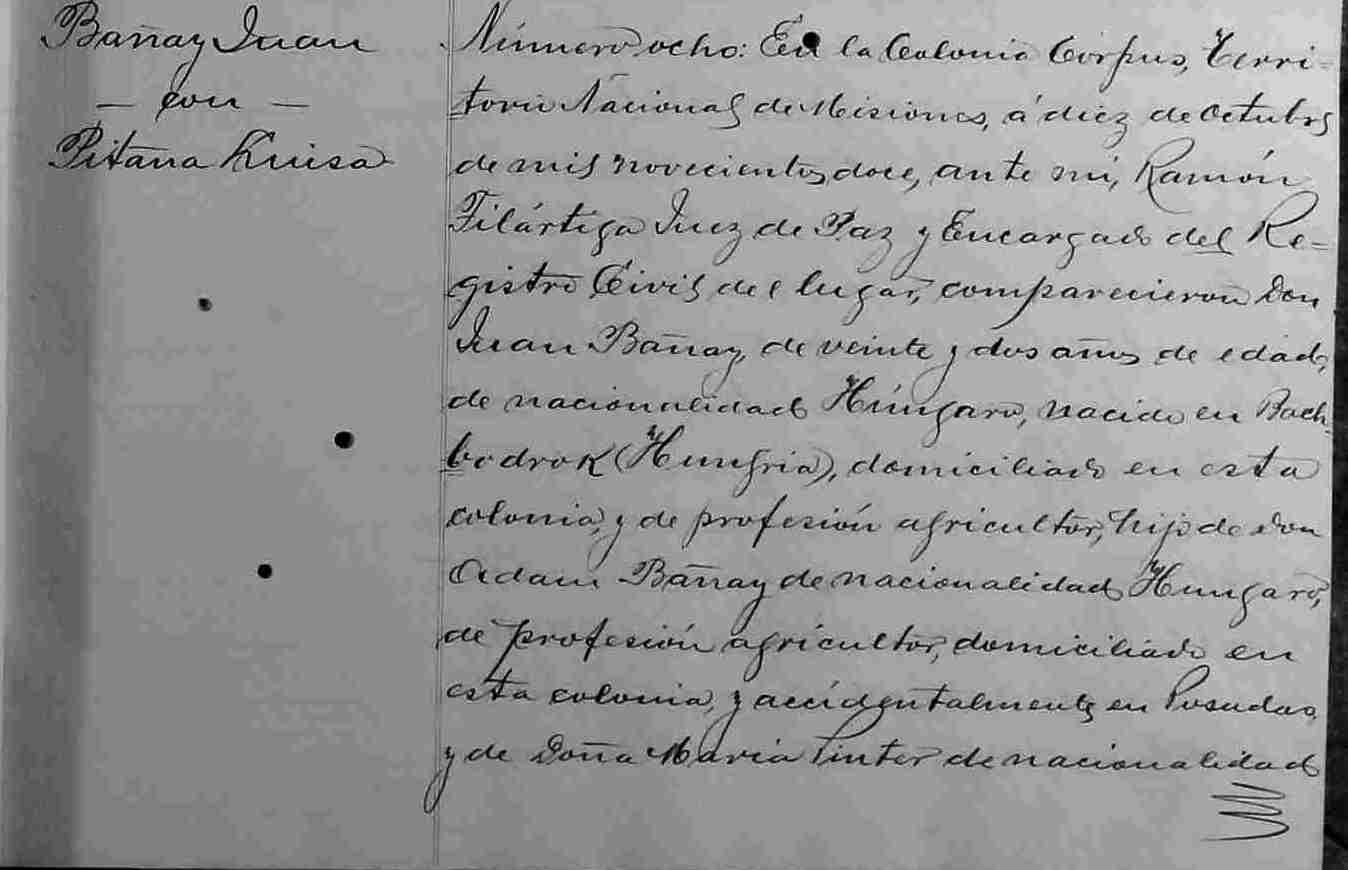 Bañay Juan
— con —
Pitana Luisa
Número ocho: En la Colonia Corpus, Terri-
torio Nacional de Misiones, á diez de Octubre
de mil novecientos doce, ante mi, Ramón
Filártiga Juez de Paz y Encargado del Re-
gistro Civil del lugar, comparecieron Don
Juan Bañay, de veinte y dos años de edad,
de nacionalidad Húngaro, nacido en Bach-
bodrok (Hungria), domiciliado en esta
colonia, y de profesión agricultor, hijo de Don
Adam Bañay de nacionalidad Hungaro,
de profesión agricultor, domiciliado en
esta colonia, y accidentalmente en Posadas,
y de Doña Maria Pinter de nacionalidad